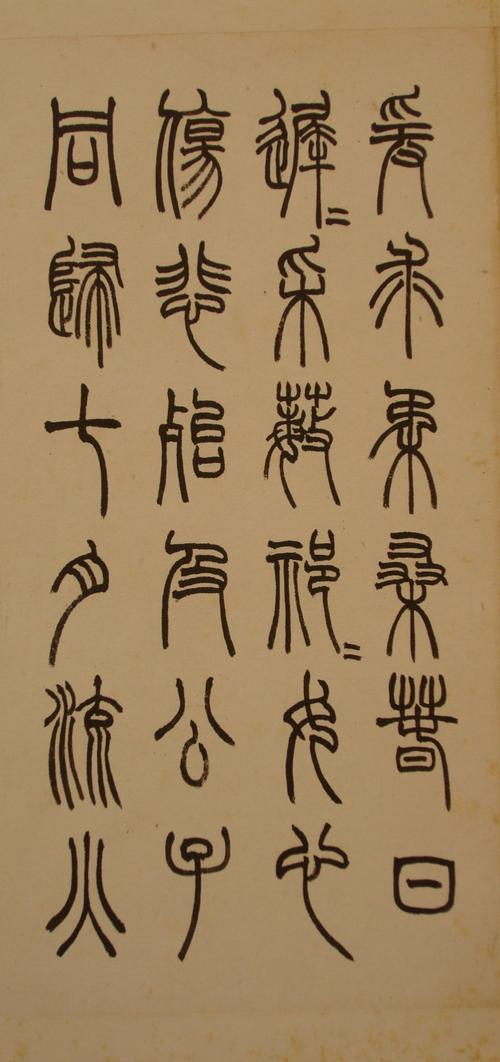 爰求柔桑春日
遲〻采蘩祁〻女心
傷悲殆及公子
同歸七月流火